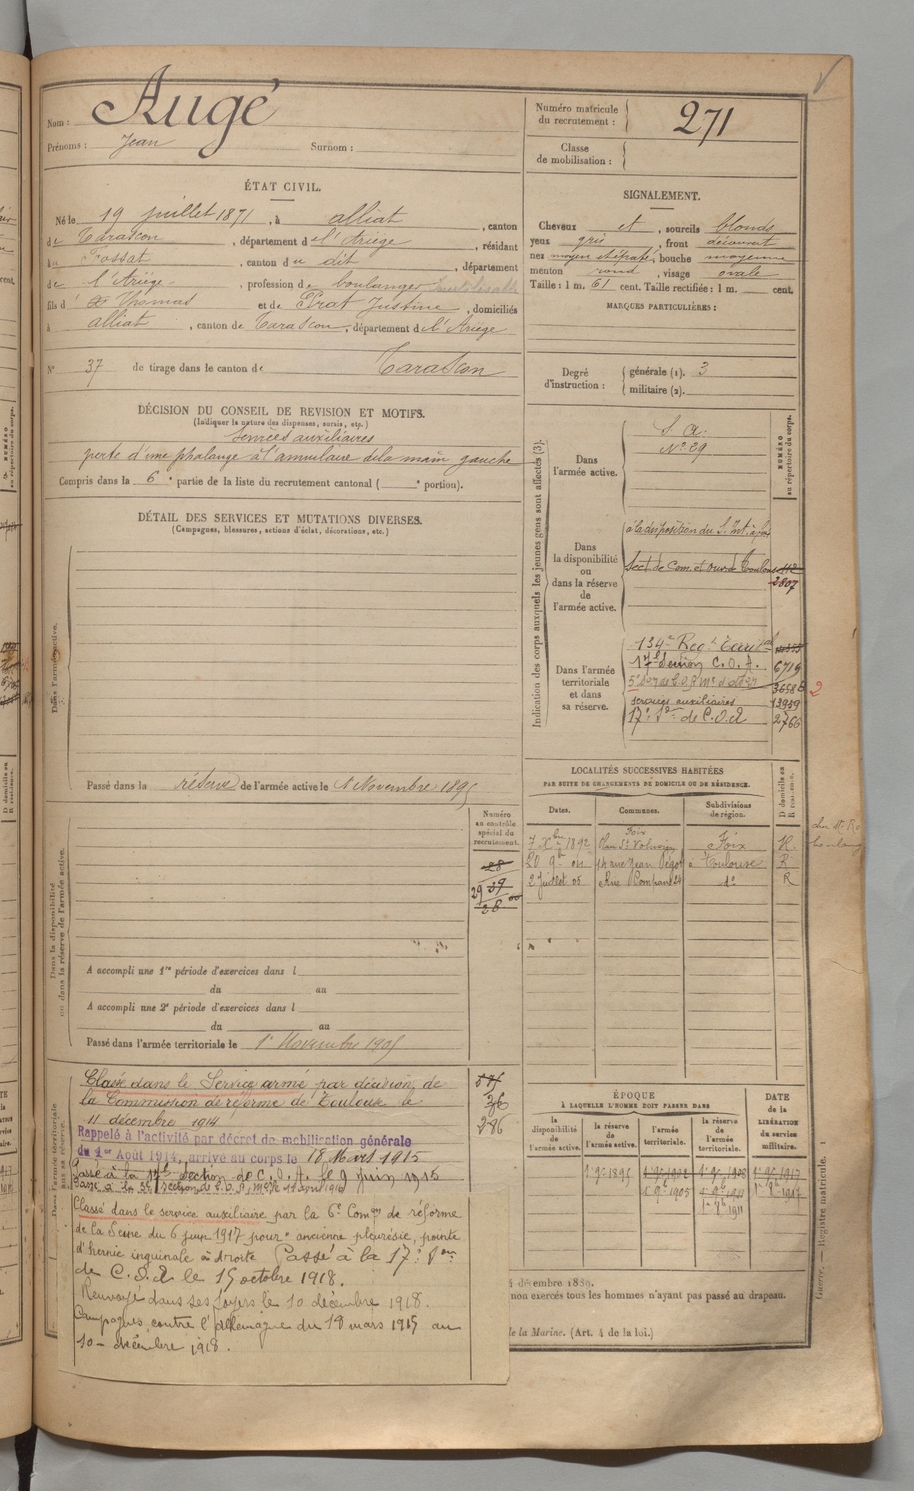 Augé
Nom :
Prénoms : Jean Surnom :
Numéro matricule
du recrutement : 271
Classe
de mobilisation :
ÉTAT CIVIL.
Né le 19 juillet 1871, à alliat, canton
de Tarascon, département de l'Ariège, résidant
à Fossat, canton du dit, département
de l'Ariège, profession de boulanger
fils de Thomas et de Prat Justine, domiciliés
à alliat, canton de Tarascon, département de l'Ariège
N° 37 de tirage dans le canton de Tarascon
SIGNALEMENT.
Cheveux et, sourcils blonds
yeux gris, front découvert
nez moyen, bouche moyenne
menton rond, visage ovale
Taille : 1 m. 61 cent. Taille rectifiée : 1 m. cent.
MARQUES PARTICULIÈRES :
Degré
d'instruction :
générale (1). 3
militaire (2).
DÉCISION DU CONSEIL DE REVISION ET MOTIFS.
(Indiquer la nature des dispenses, sursis, etc.)
Services auxiliaires
perte d'une phalange à l'annulaire de la main gauche
Compris dans la 6e partie de la liste du recrutement cantonal ( e portion).
DÉTAIL DES SERVICES ET MUTATIONS DIVERSES.
(Campagnes, blessures, actions d'éclat, décorations, etc.)
Dans l'armée active.
Passé dans la réserve de l'armée active le 1 Novembre 1895
Indication des corps auxquels les jeunes gens sont affectés (3).
NUMÉRO
au répertoire du corps.
Dans
l'armée active.
S. A.
N° 29
Dans
la disponibilité
ou
dans la réserve
de
l'armée active.
à la disposition du S. Int.
Sect. de Com. et ouv. Toulouse 112
2807
Dans l'armée
territoriale
et dans
sa réserve.
134e Reg.t Territ.al
17e Section C. O. A. 6719
36586
services auxiliaires 13939
17e S.on de C.O.A 2766
2
LOCALITÉS SUCCESSIVES HABITÉES
PAR SUITE DE CHANGEMENTS DE DOMICILE OU DE RÉSIDENCE.
Dates. Communes. Subdivisions
de région.
D domicile ou
R résidence.
7 Xbre 1892 Foix
Place St Volusien Foix R.
20 9b 04 14 rue Jean Toulouse R
2 Juillet 05 Rue 24 do R
Dans la disponibilité
ou dans la réserve de l'armée active.
Numéro
au contrôle
spécial du
recrutement.
28
29 39
28
A accompli une 1re période d'exercices dans l
du au
A accompli une 2e période d'exercices dans l
du au
Passé dans l'armée territoriale le 1er Novembre 1905
Dans l'armée territoriale
et dans sa réserve.
Classé dans le Service armé par décision de
la Commission de réforme de Toulouse le
11 décembre 1914
Rappelé à l'activité par décret de mobilisation générale
du 1er Août 1914, arrivé au corps le 18 Mars 1915
Passé à la 17e Section de C. O. A. le 9 juin 1915
36
286
Classé dans le service auxiliaire par la 6e Comon de réforme
de la Seine du 6 juin 1917 pour : ancienne pleurésie, pointe
d'hernie inguinale à droite Passé à la 17e Son
de C. O. A. le 15 octobre 1918.
Renvoyé dans ses foyers le 10 décembre 1918.
Campagnes contre l'allemagne du 18 mars 1915 au
10 décembre 1918.
ÉPOQUE
À LAQUELLE L'HOMME DOIT PASSER DANS
DATE
de la
LIBÉRATION
du service
militaire.
la
disponibilité
de
l'armée active.
la réserve
de
l'armée active.
l'armée
territoriale.
la réserve
de
l'armée
territoriale.
1er 9b 1895 1er 9b 1917
1er 9b 1905
1er 9b 1911
décembre 1880.
non exercés tous les hommes n'ayant pas passé au drapeau.
de la Marine. (Art. 4 de la loi.)
Registre matricule.